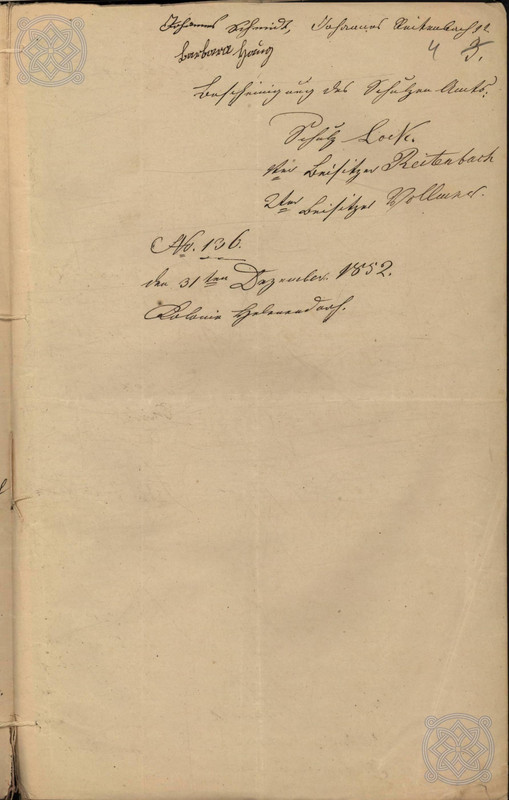 Johannes Schmidt, Johannes Reitenbach
4
barbara Haug
Bescheinigung des Schulzen Amts:
Schulz Lock.
1ter Beisitzer Reitenbach
2ter Beisitzer Vollmer.
No. 136.
den 31ten Dezember 1852.
Kolonie Helenendorf.